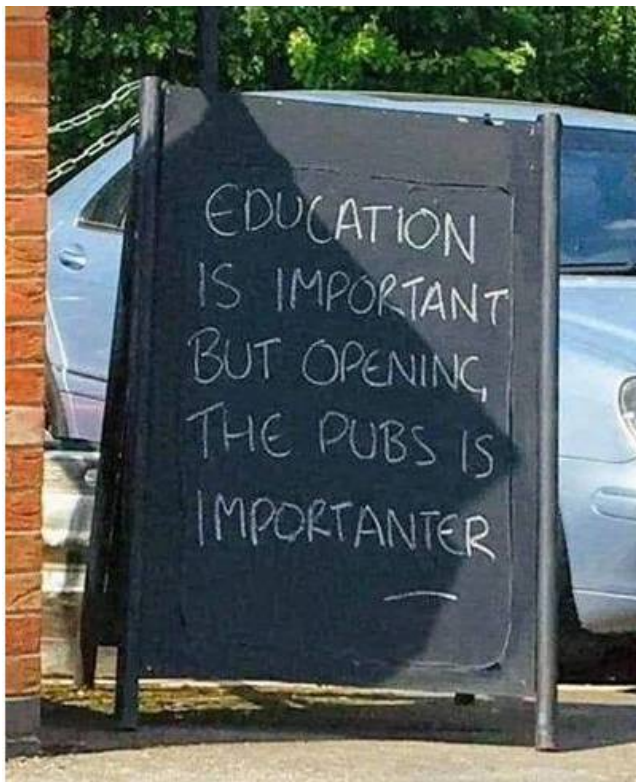 EDUCATION
IS IMPORTANT
BUT OPENING
THE PUBS IS
IMPORTANTER